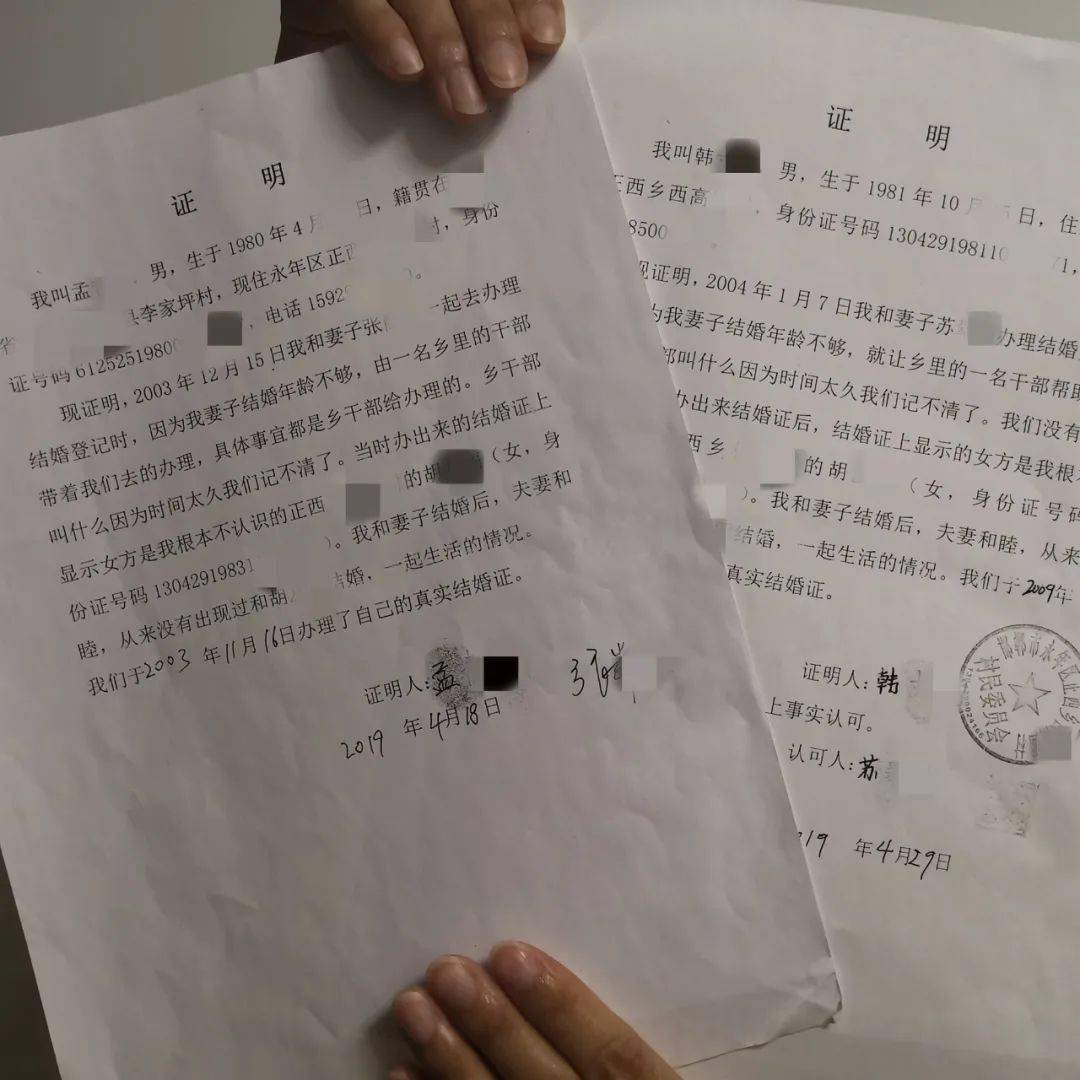 证 明
我叫孟 男，生于1980年4 日，籍贯在
县李家坪村，现住永年区正西 村，身份
证号码61252519800 ，电话1592 )。
现证明，2003年12月15日我和妻子张 一起去办理
结婚登记时，因为我妻子结婚年龄不够，由一名乡里的干部
带着我们去的办理，具体事宜都是乡干部给办理的。乡干部
叫什么因为时间太久我们记不清了。当时办出来的结婚证上
显示女方是我根本不认识的正西 的胡 （女，身
份证号码13042919831 ）。我和妻子结婚后，夫妻和
睦，从来没有出现过和胡 结婚，一起生活的情况。
我们于2003年11月16日办理了自己的真实结婚证。
证明人：孟
2019年4月18日
证 明
我叫韩 男，生于1981年10 日，住
正西乡西高 ，身份证号码130429198110 71，
8500
现证明，2004年1月7日我和妻子苏 办理结婚
为我妻子结婚年龄不够，就让乡里的一名干部帮助
部叫什么因为时间太久我们记不清了。我们没有
办出来结婚证后，结婚证上显示的女方是我根本
西乡 的胡 （女，身份证号码
）。我和妻子结婚后，夫妻和睦，从来
结婚，一起生活的情况。我们于2009年
真实结婚证。
证明人：韩
上事实认可。
认可人：苏
19年4月29日
邯郸市永年区正西乡
村民委员会